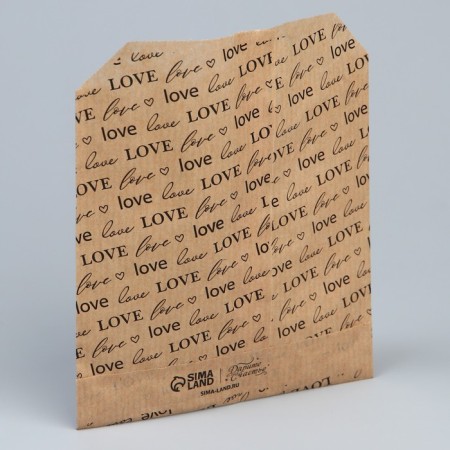 love love
LOVE love ♡ love love
love ♡ love love LOVE love ♡
love love LOVE love ♡ love
LOVE love ♡ love love LOVE
love ♡ love love LOVE love
love love LOVE love ♡ love
LOVE love ♡ love love LOVE
love ♡ love love LOVE love
love love LOVE love ♡ love
LOVE love ♡ love love
SIMA LAND
Дарите Счастье
SIMA-LAND.RU